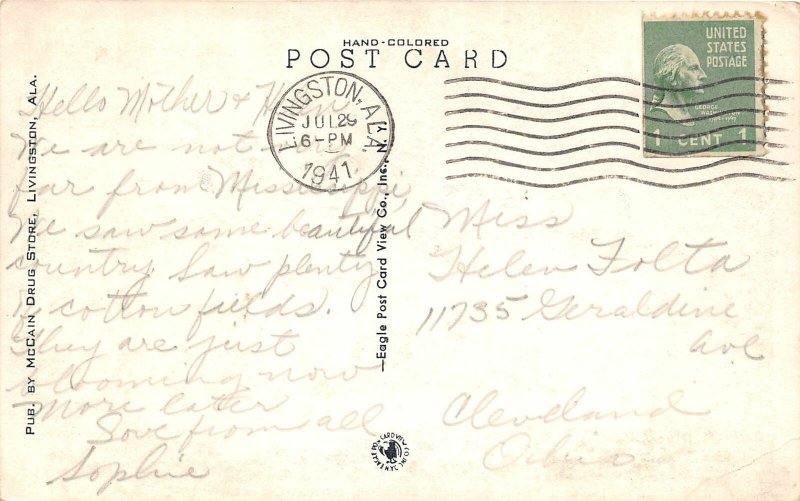 HAND-COLORED
POST CARD
UNITED
STATES
POSTAGE
GEORGE
1 CENT 1
LIVINGSTON, ALA.
JUL 29
6-PM
1941
Hello Mother &
We are not
far from Mississippi,
We saw some beautiful
country. Saw plenty
of cotton fields.
They are just
blooming now
more later
Love from all
Sophie
Miss
Helen Folta
11735 Geraldine
ave
Cleveland
Ohio
PUB. BY MCCAIN DRUG STORE, LIVINGSTON, ALA.
—Eagle Post Card View Co., Inc., N. Y.